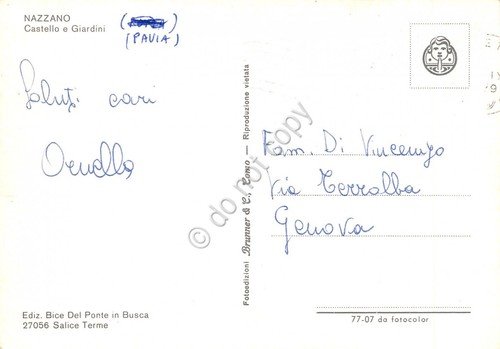 NAZZANO
Castello e Giardini
(PAVIA)
Saluti cari
Ornella
Fam. Di Vincenzo
Via Terralba
Genova
Fotoedizioni Brunner & C., Como — Riproduzione vietata
© do not copy
Ediz. Bice Del Ponte in Busca
27056 Salice Terme
77-07 da fotocolor